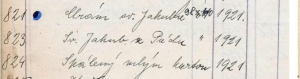 821 Chrám sv. Jakuba 1921.
823 Sv. Jakub z Pádu " 1921
824 Spálený mlýn karton 1921.